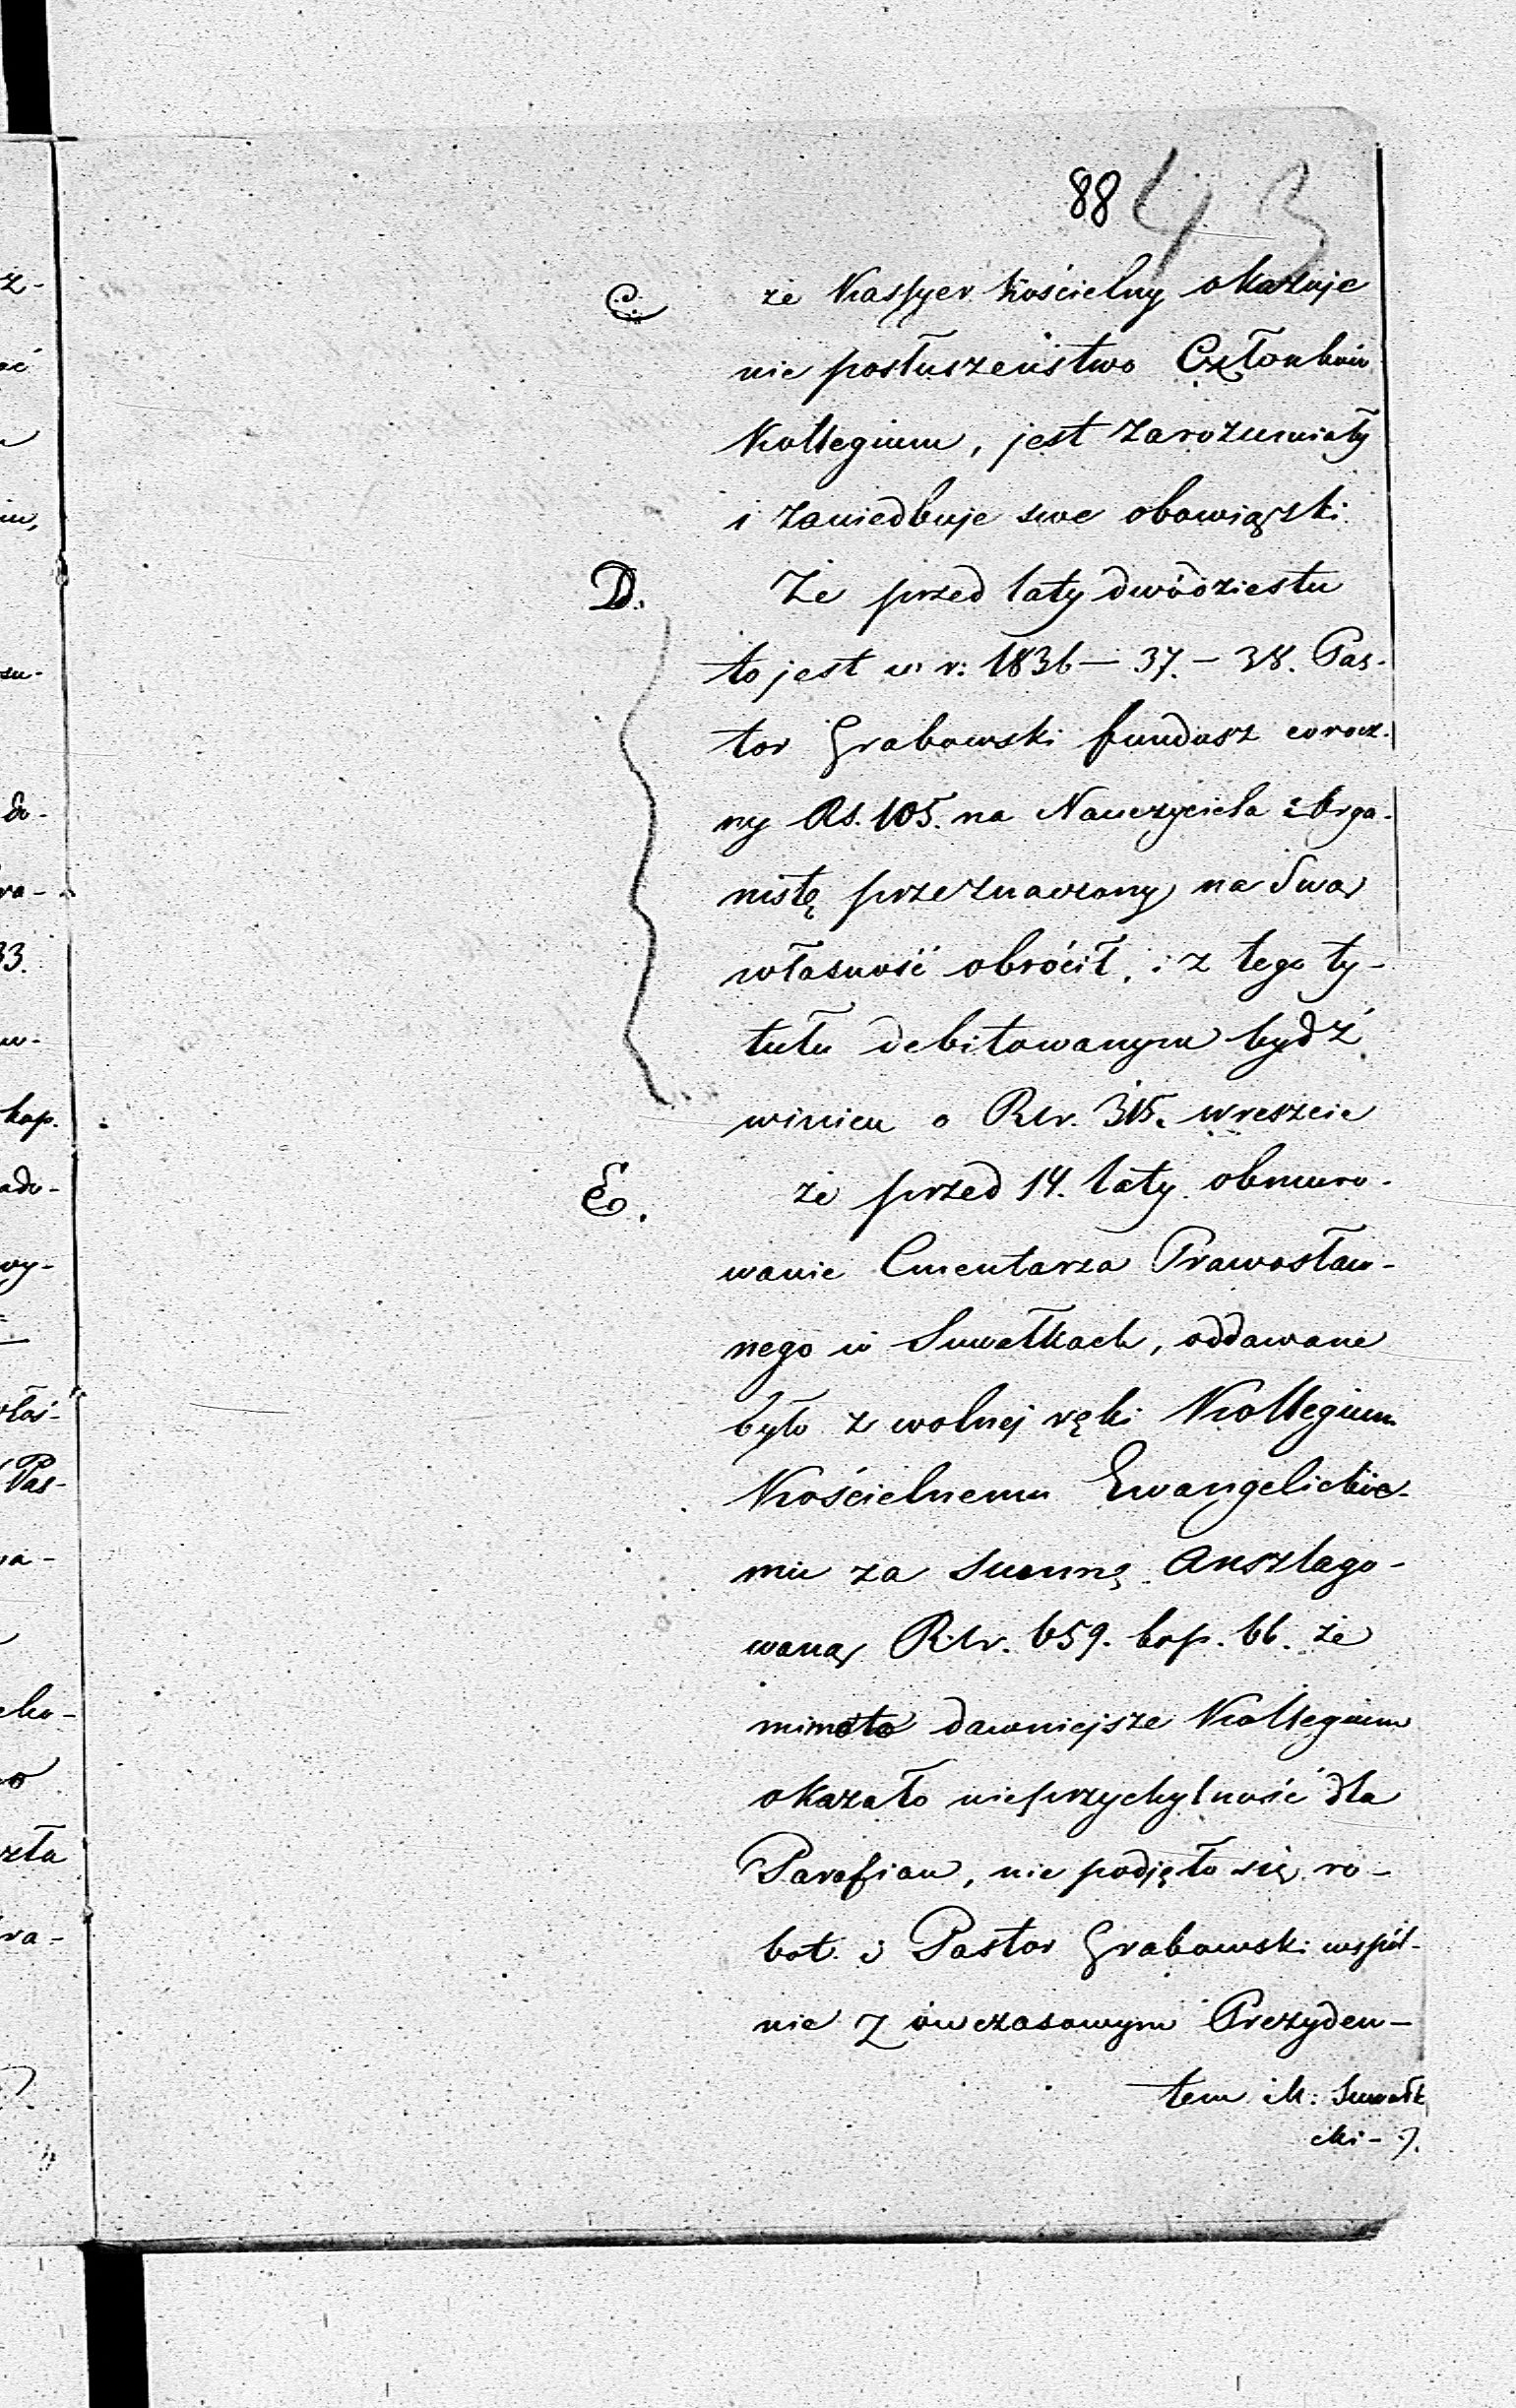 88 43
C. że Kassyer kościelny okazuje
nie posłuszeństwo Członków
Kollegium, jest zarozumiały
i zaniedbuje swe obowiązki.
D. Że przed laty dwódziestu
to jest w r: 1836 – 37. – 38. Pas-
tor Grabowski fundusz corocz-
ny Rs. 105. na Nauczyciela i Orga-
nistę przeznaczony na swą
własność obrócił, i z tego ty-
tułu debitowanym bydź
winien o Rsr. 315. wreszcie
E. że przed 14. laty obmuro-
wanie Cmentarza Prawosław-
nego w Suwałkach, oddawane
było z wolnej ręki Kollegium
Kościelnemu Ewangelickie-
mu za summę Anszlago-
waną Rsr. 659. kop. 66. że
mimoto dawniejsze Kollegium
okazało nieprzychylność dla
Parafian, nie podjęło się ro-
bot i Pastor Grabowski wspól-
nie z ówczasowym Prezyden-
tem M: Suwałk
z-
33.
do-
kop.
wy-
Pas-
ra-